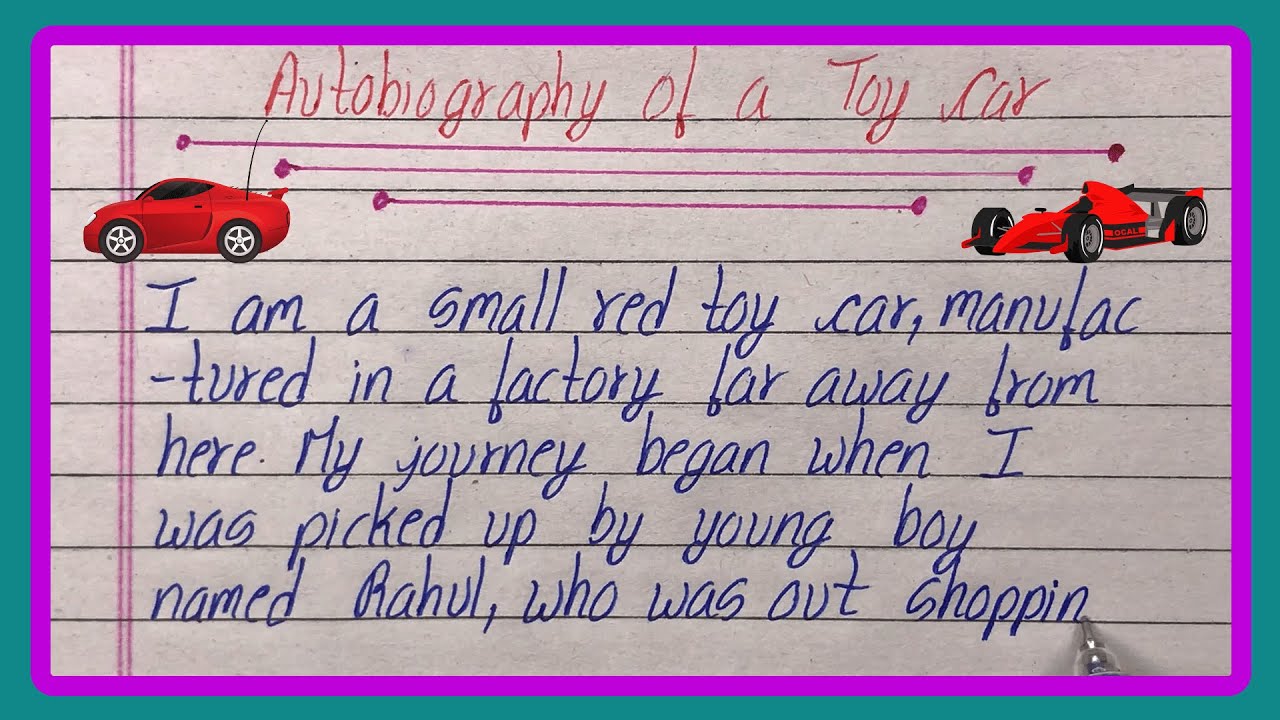 Autobiography of a Toy car
OGAL
I am a small red toy car, manufac
-tured in a factory far away from
here. My journey began when I
was picked up by young boy
named Rahul, who was out shoppin